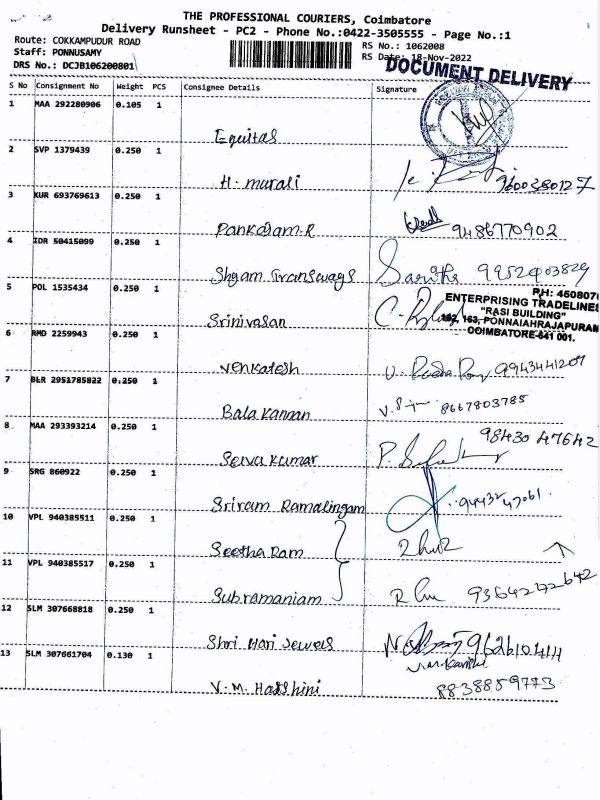 THE PROFESSIONAL COURIERS, Coimbatore
Delivery Runsheet - PC2 - Phone No.:0422-3505555 - Page No.:1
Route: COKKAMPUDUR ROAD
RS No.: 1062008
Staff: PONNUSAMY
RS Date: 18-Nov-2022
DRS No.: DCJB106200801
DOCUMENT DELIVERY
S No Consignment No Weight PCS Consignee Details Signature
1 MAA 292280906 0.105 1
Equitas
2 SVP 1379439 0.250 1
H. murali 9600380127
3 KUR 693769613 0.250 1
Pankajam.R 9486770902
4 IDR 50415099 0.250 1
Shyam Transways Saritha 9952403829
5 POL 1535434 0.250 1
PH: 450807
ENTERPRISING TRADELINES
"RASI BUILDING"
162, 163, PONNAIAHRAJAPURAM
COIMBATORE-641 001.
Srinivasan
6 RMD 2259943 0.250 1
Venkatesh 9943441207
7 BLR 2951785822 0.250 1
Bala Kannan 8667803785
8 MAA 293393214 0.250 1
98430 47642
Selva Kumar
9 SRG 860922 0.250 1
Sriram Ramalingam 9443247061
10 VPL 940385511 0.250 1
Seetha Ram
11 VPL 940385517 0.250 1
Subramaniam 9364272642
12 SLM 307668818 0.250 1
Shri Hari Jewels 962610414
13 SLM 307661704 0.130 1
V.M. Harshini 8838859773